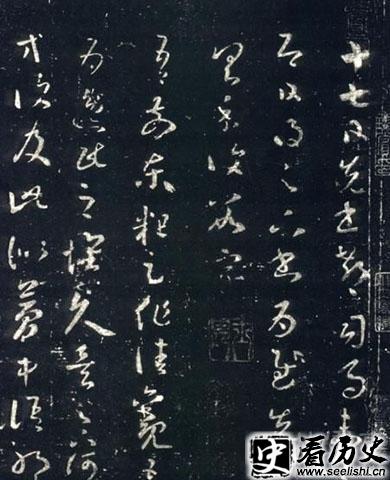 十七日先書郗司馬未
即日得足下書為慰先
具示復數字
吾前東粗足作佳觀吾
為逸民之懷久矣足下何
方復及此似夢中語耶
史 看历史
www.seelishi.cn